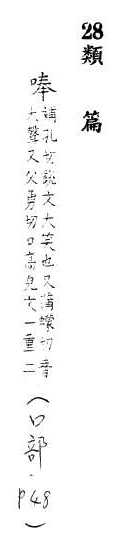 28類篇
唪
補孔切說文大笑也又蒲蠓切音
大聲又父勇切口高皃文一重二
(口部.P48)